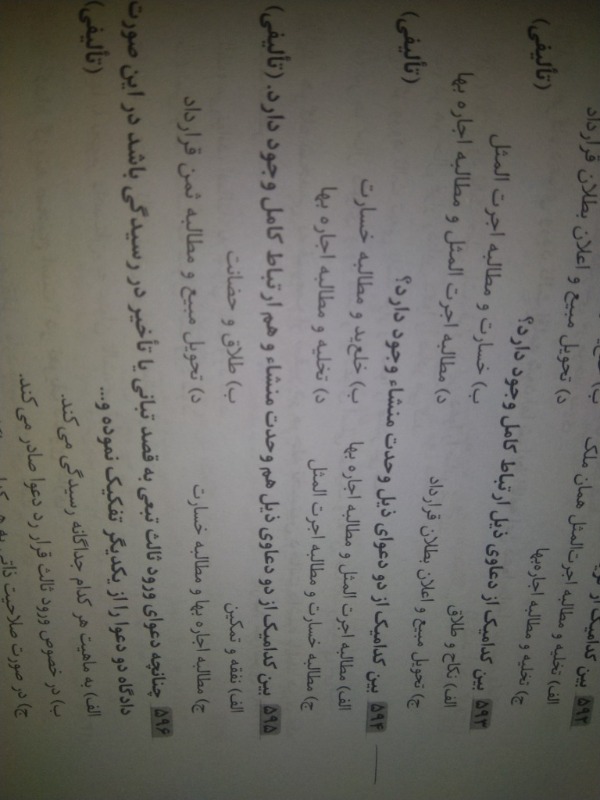 ۵۹۲ بین کدامیک از
الف) تخلیه و مطالبه اجرت‌المثل همان ملک ب)
ج) تخلیه و مطالبه اجاره‌بها د) تحویل مبیع و اعلان بطلان قرارداد
۵۹۳ بین کدامیک از دعاوی ذیل ارتباط کامل وجود دارد؟ (تألیفی)
الف) نکاح و طلاق ب) خسارت و مطالبه اجرت المثل
ج) تحویل مبیع و اعلان بطلان قرارداد د) مطالبه اجرت المثل و مطالبه اجاره بها
۵۹۴ بین کدامیک از دو دعوای ذیل وحدت منشاء وجود دارد؟ (تألیفی)
الف) مطالبه اجرت المثل و مطالبه اجاره بها ب) خلع‌ید و مطالبه خسارت
ج) مطالبه خسارت و مطالبه اجرت المثل د) تخلیه و مطالبه اجاره بها
۵۹۵ بین کدامیک از دو دعاوی ذیل هم وحدت منشاء و هم ارتباط کامل وجود دارد. (تألیفی)
الف) نفقه و تمکین ب) طلاق و حضانت
ج) مطالبه اجاره بها و مطالبه خسارت د) تحویل مبیع و مطالبه ثمن قرارداد
۵۹۶ چنانچه دعوای ورود ثالث تبعی به قصد تبانی یا تأخیر در رسیدگی باشد در این صورت
دادگاه دو دعوا را از یکدیگر تفکیک نموده و... (تألیفی)
الف) به ماهیت هر کدام جداگانه رسیدگی می‌کند.
ب) در خصوص ورود ثالث قرار رد دعوا صادر می‌کند.
ج) در صورت صلاحیت ذاتی به هر